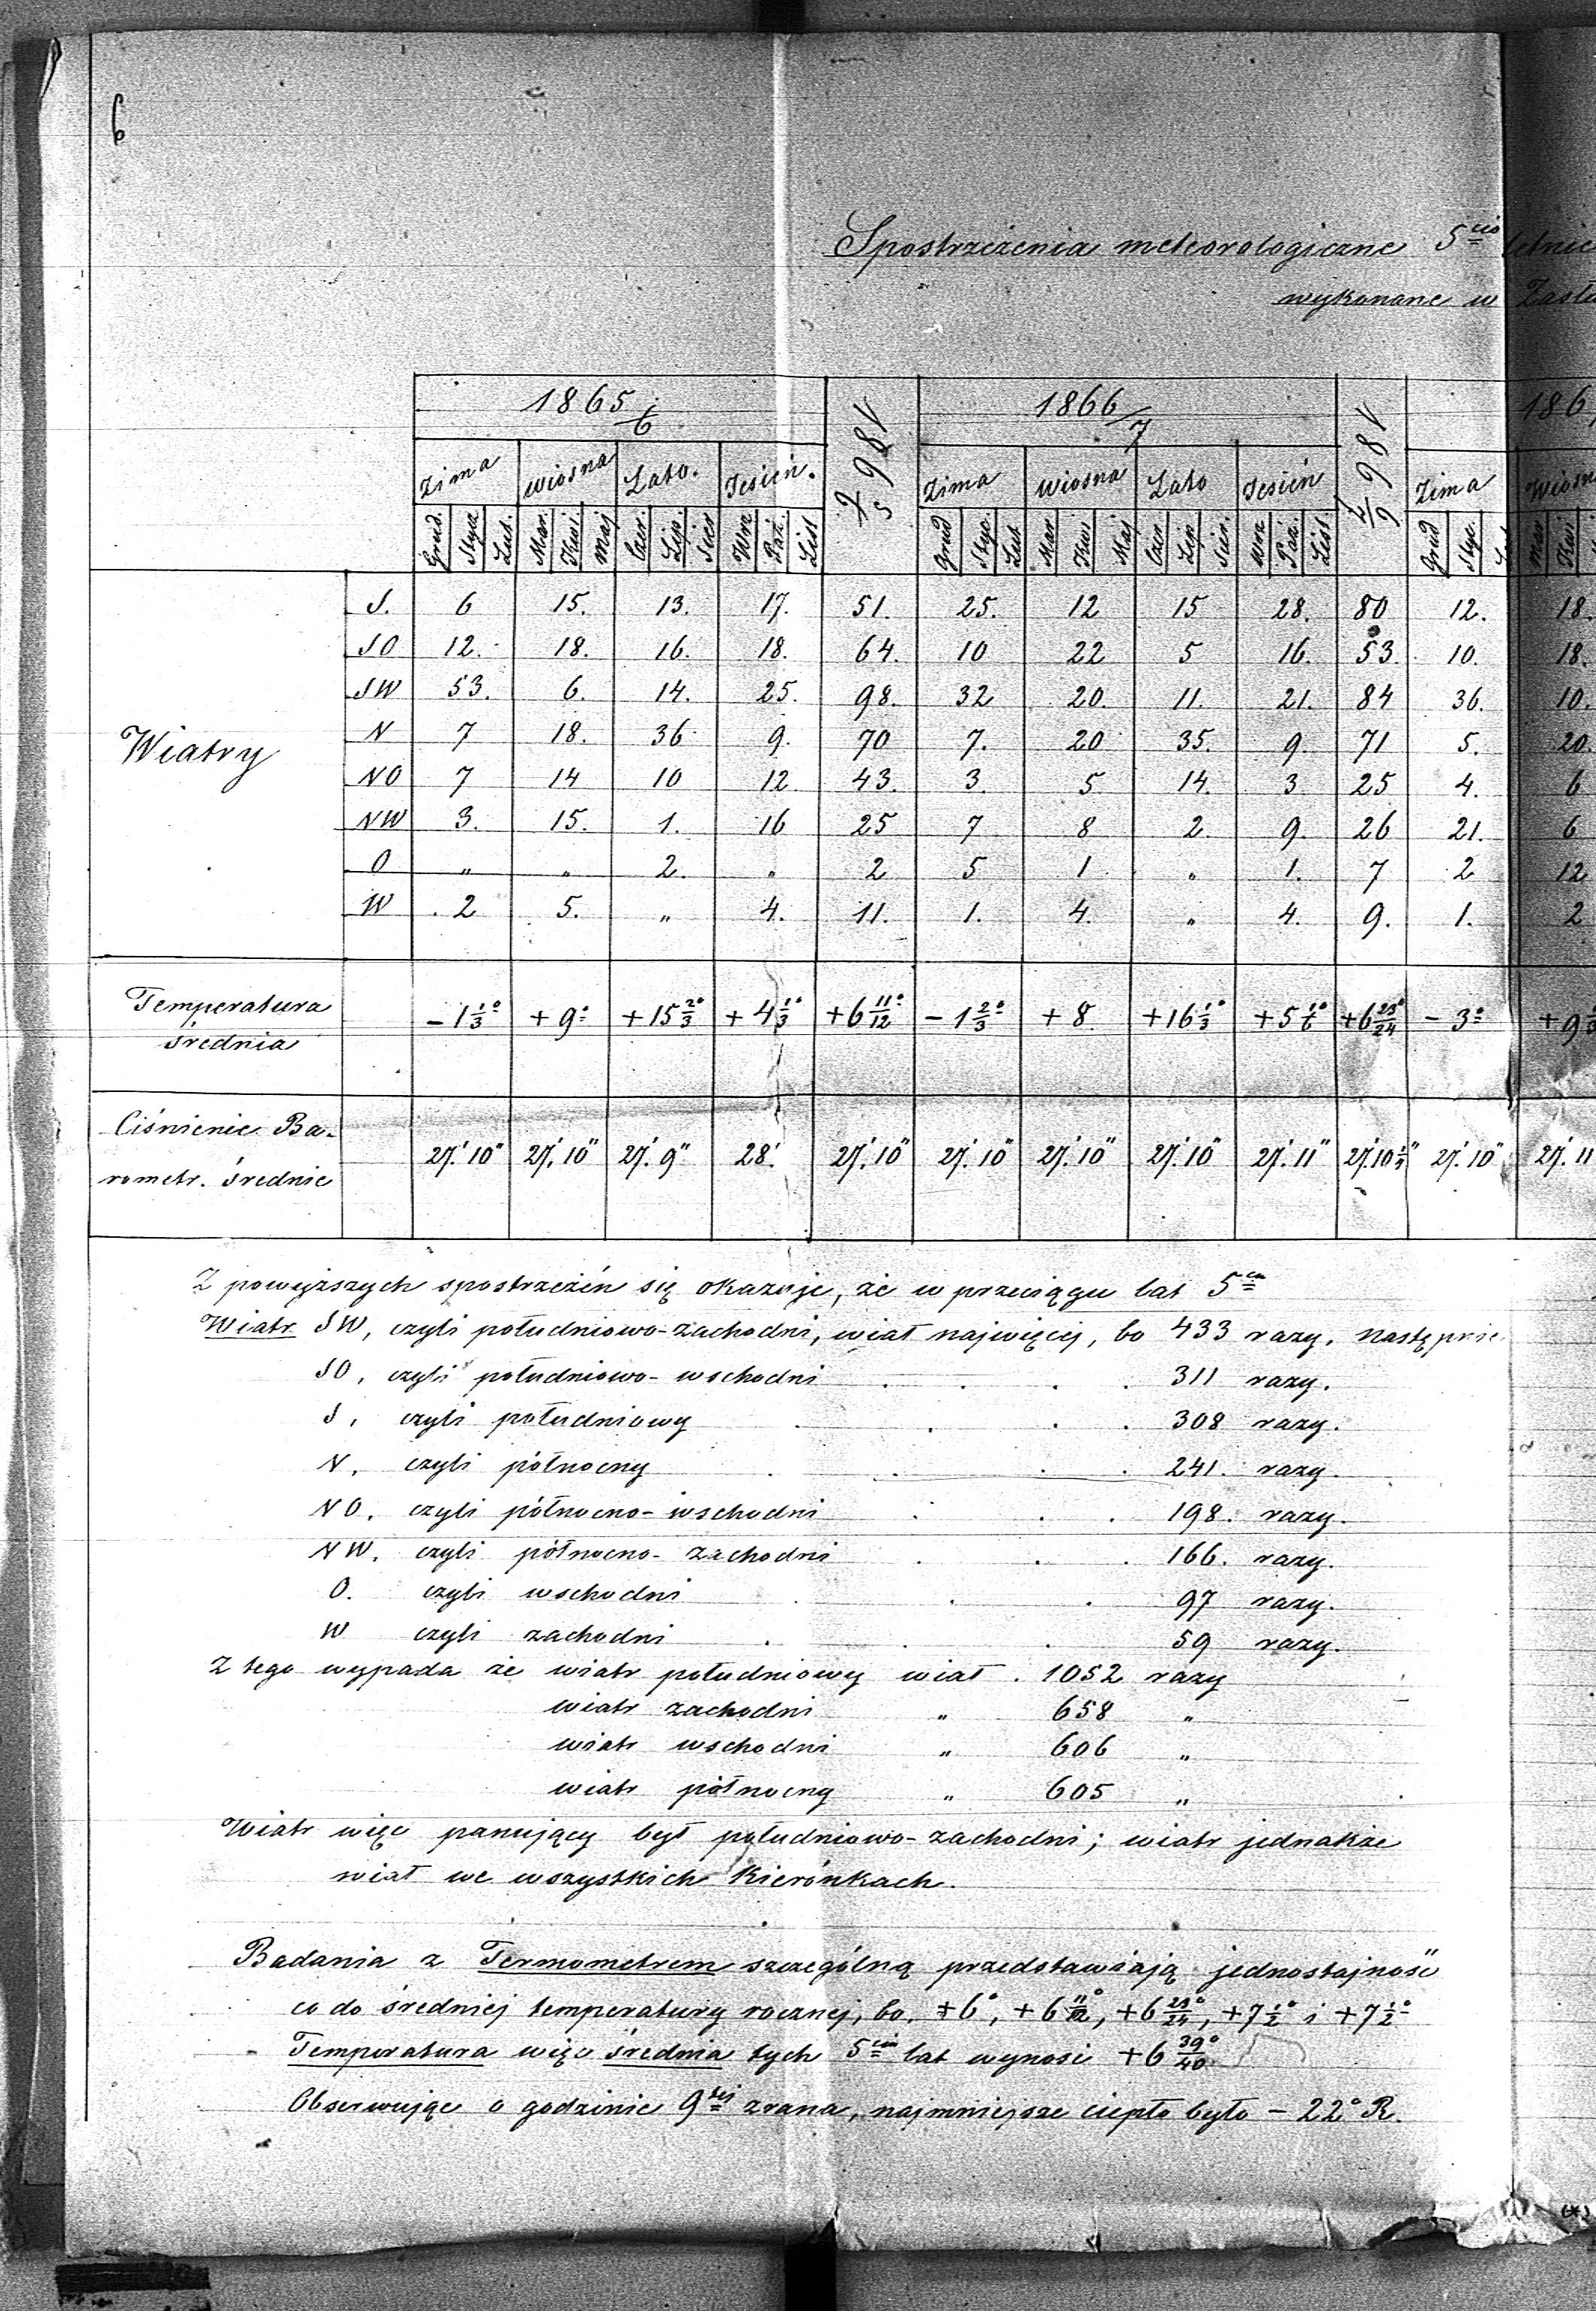 6
Spostrzeżenia meteorologiczne 5cio letnie
wykonane w
1865/6 1865/6 1866/7 1866/7 186
Zima Wiosna Lato. Jesień. Zima Wiosna Lato Jesień Zima Wiosn
Grud. Stycz. Lut. Mar. Kwi. Maj Czer. Lip. Sier Wrz Paź. List Grud Styc. Lut Mar Kwi Maj Czer Lip Sier. Wrz Paź. List. Grud Styc. Mar Kwi
Wiatry
S. 6 15. 13. 17. 51. 25. 12 15 28. 80 12. 18.
SO 12. 18. 16. 18. 64. 10 22 5 16. 53. 10. 18.
SW 53. 6. 14. 25. 98. 32 20. 11. 21. 84 36. 10.
N 7 18. 36 9. 70 7. 20 35. 9. 71 5. 20.
NO 7 14 10 12 43. 3. 5 14. 3 25 4. 6
NW 3. 15. 1. 16 25 7 8 2. 9. 26 21. 6
O „ „ 2. „ 2 5 1 „ 1. 7 2 12
W 2 5. „ 4. 11. 1. 4. „ 4. 9. 1. 2
Temperatura
średnia
-1 1/3° +9° +15 2/3° +4 1/3° +6 11/12° -1 2/3° +8 +16 1/3° +5 1/6° +6 23/24° -3° +9
Ciśnienie Ba-
rometr. średnie
27.' 10" 27.' 10" 27.' 9" 28.' 27.' 10" 27.' 10" 27.' 10" 27.' 10" 27.' 11" 27.' 10 27.' 10" 27.' 11
Z powyższych spostrzeżeń się okazuje, że w przeciągu lat 5ciu
Wiatr SW, czyli południowo-zachodni, wiał najwięcej, bo 433 razy, następnie
SO, czyli południowo-wschodni . . . 311 razy.
S, czyli południowy . . . . 308 razy.
N. czyli północny . . . . 241. razy.
NO. czyli północno-wschodni . . . 198. razy.
NW. czyli północno-zachodni . . . 166. razy.
O. czyli wschodni . . . 97 razy.
W czyli zachodni . . . 59 razy.
Z tego wypada że wiatr południowy wiał . 1052 razy
wiatr zachodni „ 658 „
wiatr wschodni „ 606 „
wiatr północny „ 605 „
Wiatr więc panujący był południowo-zachodni; wiatr jednakże
wiał we wszystkich kierónkach.
Badania z Termometrem szczególną przedstawiają jednostajność
co do średniej temperatury rocznej, bo. +6°, +6 11/12°, +6 23/24°, +7 1/2° i +7 1/2°
Temperatura więc średnia tych 5ciu lat wynosi +6 39/40°
Obserwując o godzinie 9tej zrana, najmniejsze ciepło było - 22° R.